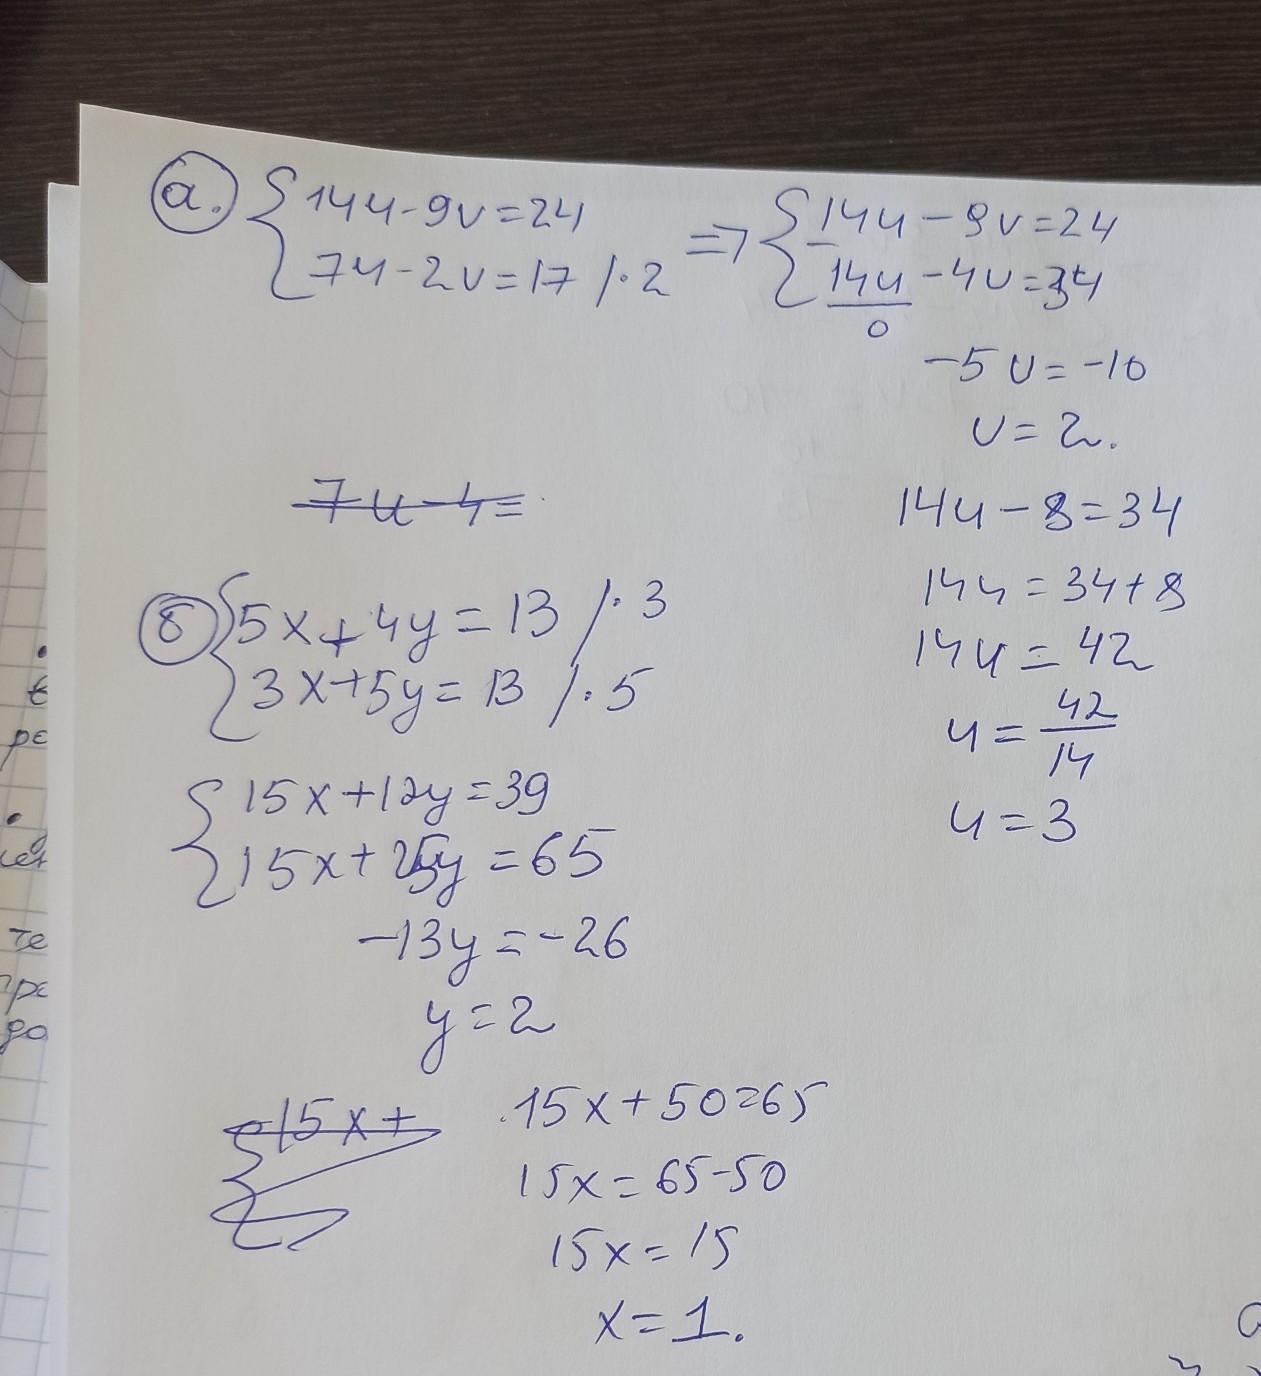 а. { 14u-9v=24
7u-2v=17 /·2
=> { 14u-9v=24
14u-4v=34
0
-5v=-10
v=2.
14u-8=34
14u=34+8
14u=42
u=42/14
u=3
7u-4=
б { 5x+4y=13 /·3
3x+5y=13 /·5
{ 15x+12y=39
15x+25y=65
-13y=-26
y=2
15x+
15x+50=65
15x=65-50
15x=15
x=1.
ре
те
до